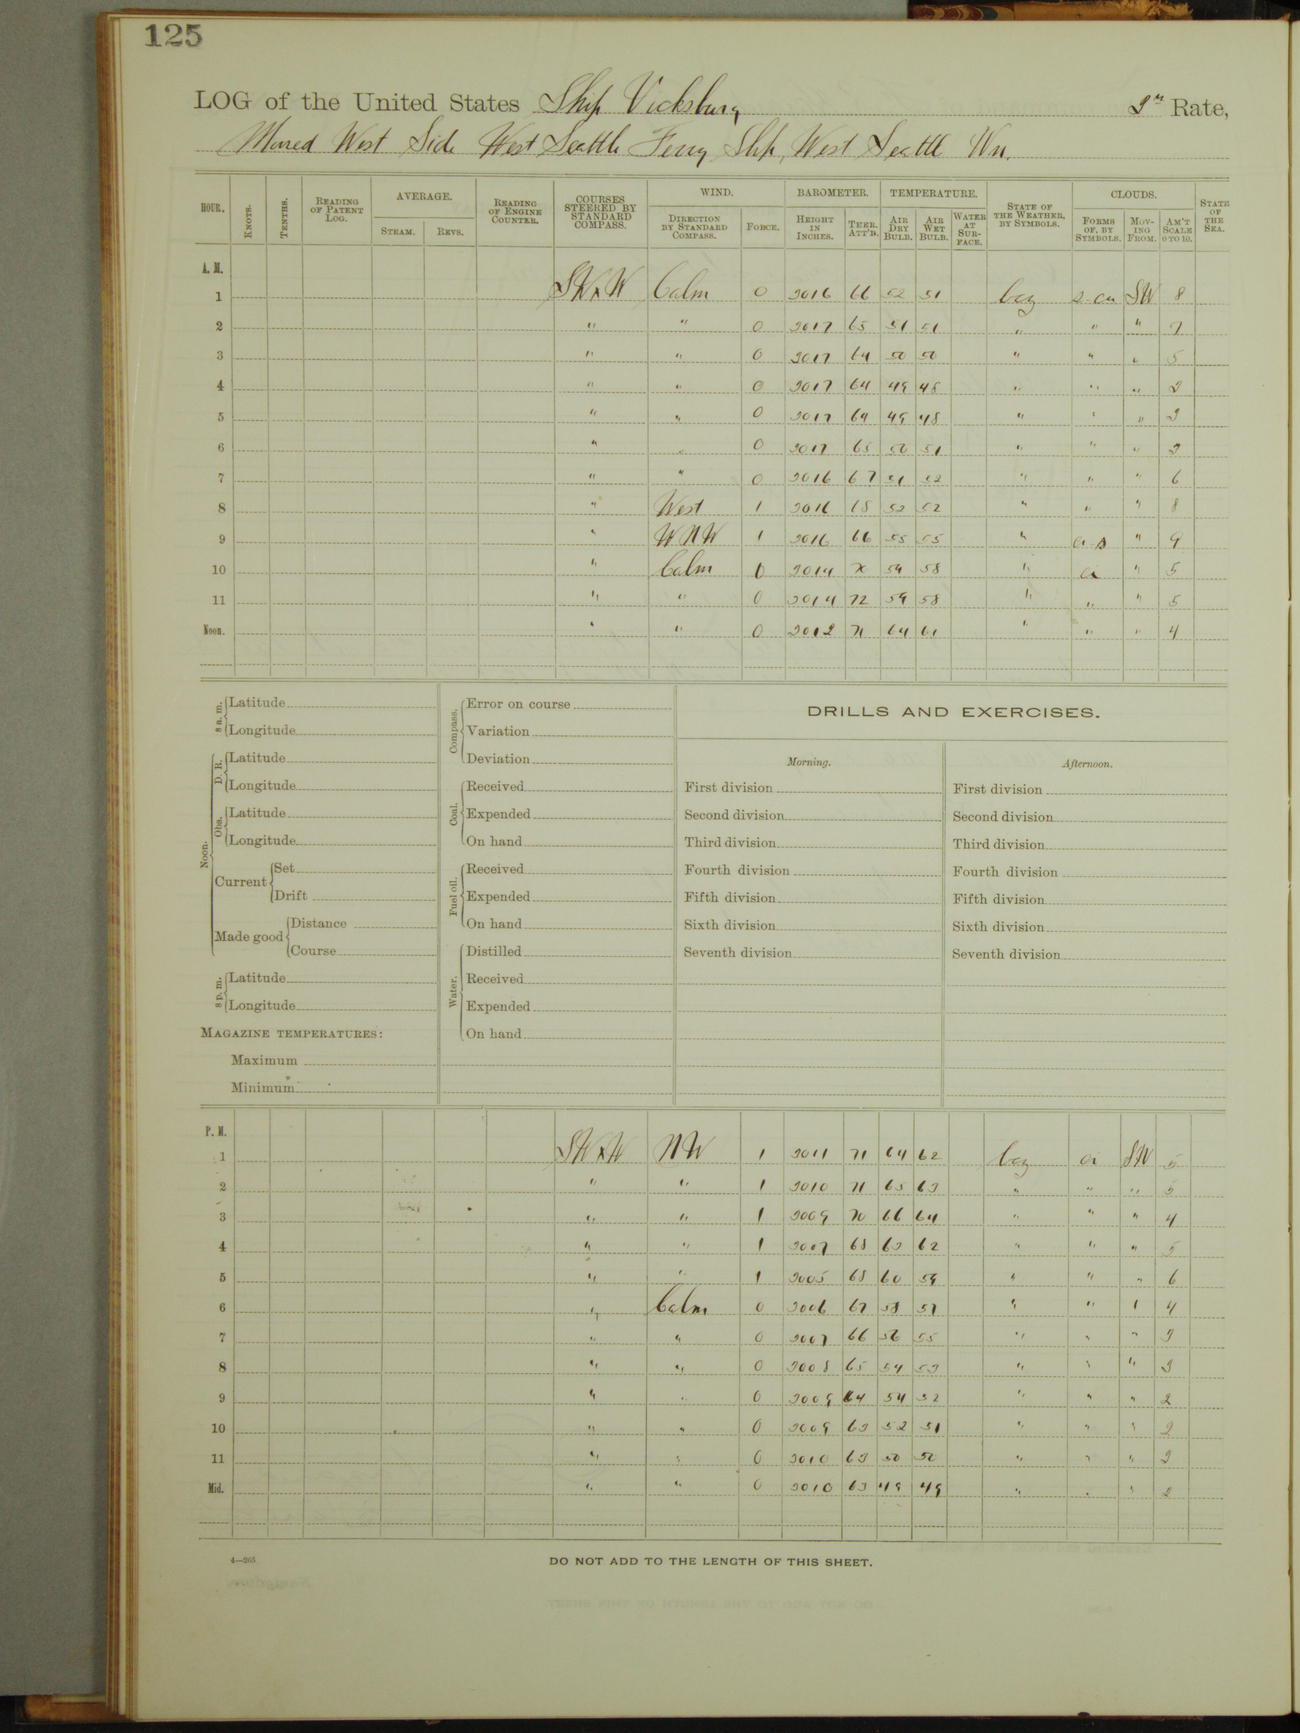 125
LOG of the United States Ship Vicksburg Rate,
Moored West Side West Seattle Ferry Slip, West Seattle Wn.
HOUR. KNOTS. TENTHS. READING OF PATENT LOG. AVERAGE. STEAM. REVS. READING OF ENGINE COUNTER. COURSES STEERED BY STANDARD COMPASS. WIND. DIRECTION BY STANDARD COMPASS. FORCE. BAROMETER. HEIGHT IN INCHES. THER. ATT'D. TEMPERATURE. AIR DRY BULB. AIR WET BULB. WATER AT SURFACE. STATE OF THE WEATHER, BY SYMBOLS. CLOUDS. FORMS OF, BY SYMBOLS. MOVING FROM. AM'T SCALE 0 TO 10. STATE OF THE SEA.
A. M.
1 SWxW Calm 0 3016 66 52 51 bcz s-cu SW 8
2 " " 0 3017 65 51 51 " " " 7
3 " " 0 3017 64 50 50 " " " 5
4 " " 0 3017 64 49 48 " " " 3
5 " " 0 3017 64 49 48 " " " 3
6 " " 0 3017 65 50 51 " " " 3
7 " " 0 3016 67 51 52 " " " 6
8 " West 1 3016 68 52 52 " " " 8
9 " WNW 1 3016 66 55 55 " ci-s " 9
10 " Calm 0 3014 70 59 58 " ci " 5
11 " " 0 3014 72 59 58 " " " 5
Noon. " " 0 3012 71 64 61 " " " 4
8 a. m. Latitude
Longitude
Noon. D. R. Latitude
Longitude
Obs. Latitude
Longitude
Current Set
Drift
Made good Distance
Course
8 p. m. Latitude
Longitude
MAGAZINE TEMPERATURES:
Maximum
Minimum
Compass. Error on course
Variation
Deviation
Coal. Received
Expended
On hand
Fuel oil. Received
Expended
On hand
Water. Distilled
Received
Expended
On hand
DRILLS AND EXERCISES.
Morning. Afternoon.
First division First division
Second division Second division
Third division Third division
Fourth division Fourth division
Fifth division Fifth division
Sixth division Sixth division
Seventh division Seventh division
P. M.
1 SWxW NW 1 3011 71 64 62 bcz ci SW 5
2 " " 1 3010 71 65 63 " " " 5
3 " " 1 3009 70 66 64 " " " 4
4 " " 1 3007 68 63 62 " " " 5
5 " " 1 3005 68 60 59 " " " 6
6 " Calm 0 3006 67 58 57 " " " 4
7 " " 0 3007 66 56 55 " " " 3
8 " " 0 3008 65 54 53 " " " 3
9 " " 0 3009 64 54 52 " " " 2
10 " " 0 3009 63 52 51 " " " 2
11 " " 0 3010 63 50 50 " " " 2
Mid. " " 0 3010 63 49 49 " " " 2
4—265 DO NOT ADD TO THE LENGTH OF THIS SHEET.